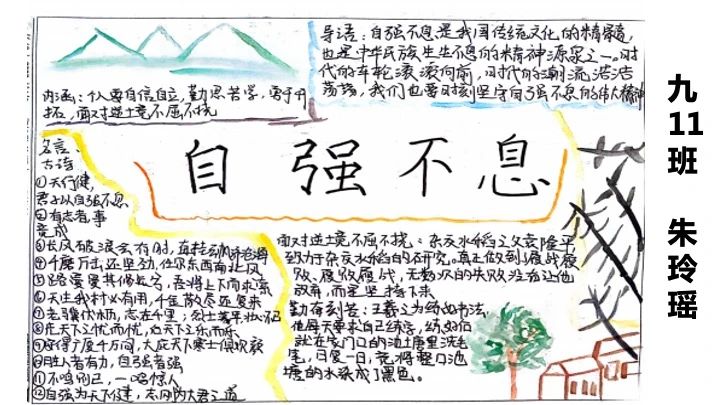 导语:自强不息是我国传统文化的精髓,
也是中华民族生生不息的精神源泉之一。时
代的车轮滚滚向前,时代的潮流浩浩
荡荡,我们也要时刻坚守自强不息的伟大精神
内涵:个人要自信自立,勤思苦学,勇于开
拓,面对逆境不屈不挠
自强不息
名言、
古诗
①天行健,
君子以自强不息
②有志者,事
竟成
③长风破浪会有时,直挂云帆济沧海
④千磨万击还坚劲,任尔东西南北风
⑤路漫漫其修远兮,吾将上下而求索
⑥天生我材必有用,千金散尽还复来
⑦老骥伏枥,志在千里;烈士暮年,壮心不已
⑧先天下之忧而忧,后天下之乐而乐
⑨安得广厦千万间,大庇天下寒士俱欢颜
⑩胜人者有力,自胜者强
⑪不鸣则已,一鸣惊人
⑫自强为天下健,志刚为大君之道
面对逆境不屈不挠:杂交水稻之父袁隆平
致力于杂交水稻的研究。真正做到了屡战屡
败、屡败屡战,无数次的失败没有让他
放弃,而是坚持下来
勤奋刻苦:王羲之为练好书法,
他每天要求自己练字,练好后
就在家门口的池塘里洗毛
笔,日复一日,竟将整口池
塘的水染成了黑色。
九
11
班
朱
玲
瑶